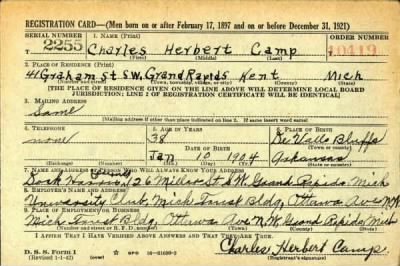 REGISTRATION CARD—(Men born on or after February 17, 1897 and on or before December 31, 1921)
SERIAL NUMBER 1. NAME (Print) ORDER NUMBER
2255 Charles Herbert Camp 10419
(First) (Middle) (Last)
2. PLACE OF RESIDENCE (Print)
41 Graham St S.W. Grand Rapids Kent Mich
(Number and street) (Town, township, village, or city) (County) (State)
[THE PLACE OF RESIDENCE GIVEN ON THE LINE ABOVE WILL DETERMINE LOCAL BOARD
JURISDICTION; LINE 2 OF REGISTRATION CERTIFICATE WILL BE IDENTICAL]
3. MAILING ADDRESS
Same
[Mailing address if other than place indicated on line 2. If same insert word same]
4. TELEPHONE 5. AGE IN YEARS 6. PLACE OF BIRTH
none 38 De Valls Bluffs
DATE OF BIRTH (Town or county)
Jan 10 1904 Arkansas
(Exchange) (Number) (Mo.) (Day) (Yr.) (State or country)
7. NAME AND ADDRESS OF PERSON WHO WILL ALWAYS KNOW YOUR ADDRESS
26 Miller St S.W. Grand Rapids Mich
8. EMPLOYER'S NAME AND ADDRESS
University Club, Mich Trust Bldg, Ottawa Ave N.W.
9. PLACE OF EMPLOYMENT OR BUSINESS
Mich Trust Bldg, Ottawa Ave N.W. Grand Rapids Mich
(Number and street or R. F. D. number) (Town) (County) (State)
I AFFIRM THAT I HAVE VERIFIED ABOVE ANSWERS AND THAT THEY ARE TRUE.
Charles Herbert Camp
D. S. S. Form 1
(Revised 1-1-42) (over) GPO (Registrant's signature)